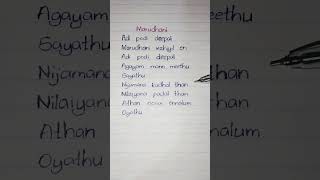 Marudhani
Adi podi deepali
Marudhani kaiyyil en
Adi podi deepali
Agayam mann meethu
Sayathu
Nijamana kudhal than
Nilaiyana padal than
Athan osai ennalum
Oyathu
Agayam
eethu
Sayathu
Nijamana
Nilaiyana
Athan
nnalum
Oyathu